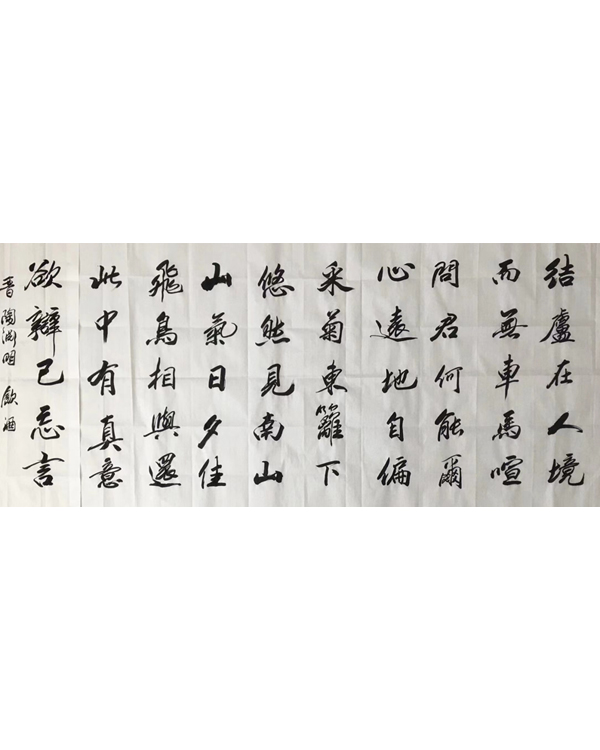 結盧在人境
而無車馬喧
問君何能爾
心遠地自偏
采菊東籬下
悠然見南山
山氣日夕佳
飛鳥相與還
此中有真意
欲辯已忘言
晋陶淵明飲酒